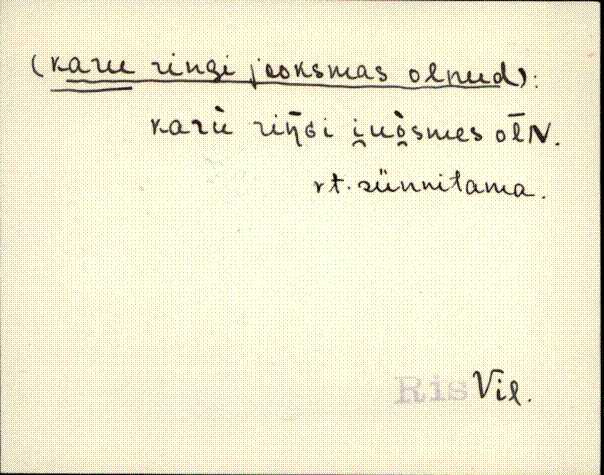 (karu ringi jooksmas olnud):
karù rin̄Gi i̯uȯ̯smes ol̄N.
vt. sünnitama.
Ris Vil.